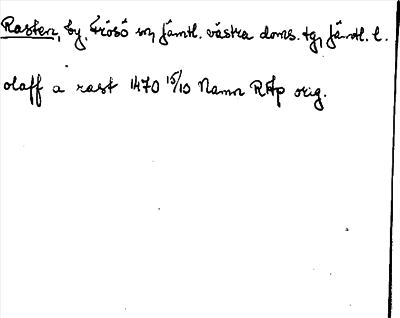 Rasten, by, Frösö sn, Jämtl. västra doms. tg, Jämtl. l.
olaff a rast 1470 15/10 Namn RAp orig.